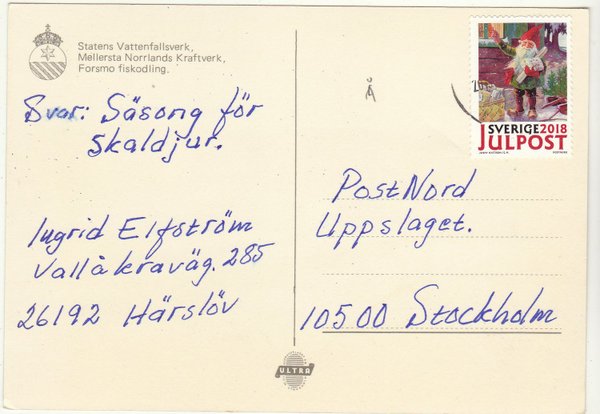 Statens Vattenfallsverk,
Mellersta Norrlands Kraftverk,
Forsmo fiskodling.
Svar: Säsong för
Skaldjur.
Ingrid Elfström
Vallåkraväg. 285
26192 Härslöv
Å
SVERIGE 2018
JULPOST
PostNord
Uppslaget.
10500 Stockholm
ULTRA